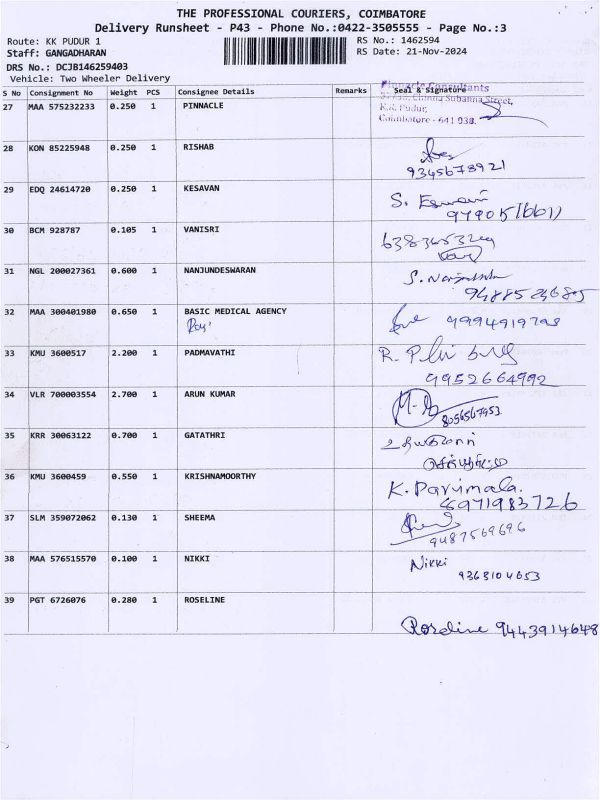 THE PROFESSIONAL COURIERS, COIMBATORE
Delivery Runsheet - P43 - Phone No.:0422-3505555 - Page No.:3
Route: KK PUDUR 1 RS No.: 1462594
Staff: GANGADHARAN RS Date: 21-Nov-2024
DRS No.: DCJB146259403
Vehicle: Two Wheeler Delivery
S No Consignment No Weight PCS Consignee Details Remarks Seal & Signature
27 MAA 575232233 0.250 1 PINNACLE Pinnacle Consultants
Street,
K.K. Pudur,
Coimbatore - 641 038.
28 KON 85225948 0.250 1 RISHAB
9345678921
29 EDQ 24614720 0.250 1 KESAVAN S.
30 BCM 928787 0.105 1 VANISRI
31 NGL 200027361 0.600 1 NANJUNDESWARAN
32 MAA 300401980 0.650 1 BASIC MEDICAL AGENCY
33 KMU 3600517 2.200 1 PADMAVATHI
9952664992
34 VLR 700003554 2.700 1 ARUN KUMAR
8056567953
35 KRR 30063122 0.700 1 GATATHRI
36 KMU 3600459 0.550 1 KRISHNAMOORTHY K. Parimala.
37 SLM 359072062 0.130 1 SHEEMA
9487569696
38 MAA 576515570 0.100 1 NIKKI Nikki
9363104653
39 PGT 6726076 0.280 1 ROSELINE
Roseline 9443914648